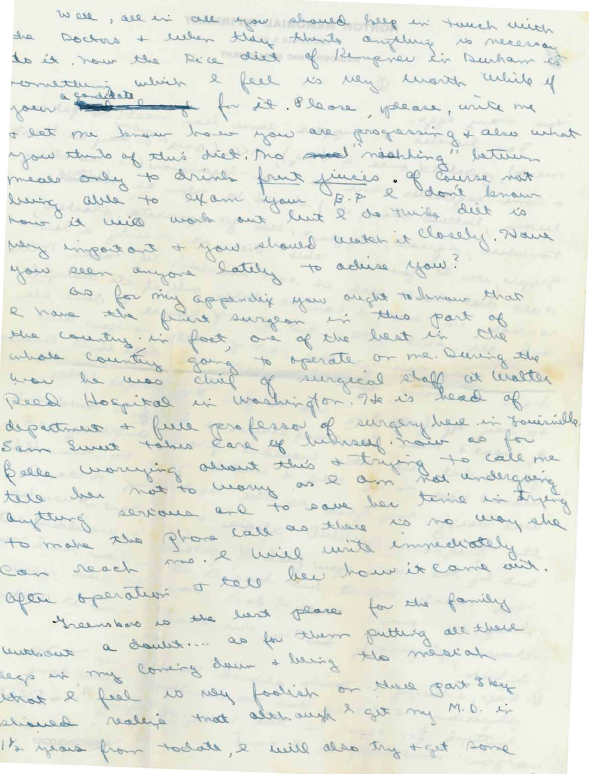 Well, all in all you should keep in touch with
the Doctors & when they think anything is necessary
do it. Now the Rice diet of Kempner in Durham is
something which I feel is very worth while if
your a candidate for it. Please, please, write me
& let me know how you are progressing & also what
you think of this diet. No "noshing" between
meals only to drink fruit juices. Of course not
being able to exam your B.P. I don't know
how it will work out but I do think diet is
very important & you should watch it closely. Have
you seen anyone lately to advise you?
As for my appendix you ought to know that
I have the finest surgeon in this part of
the country. in fact, one of the best in the
whole country going to operate on me. During the
war he was chief of surgical staff at Walter
Reed Hospital in Washington. He is head of
department & full professor of surgery here in Louisville.
Sam Sweet takes care of himself. Now as for
Belle worrying about this & trying to call me
tell her not to worry as I am not undergoing
anything serious and to save her time in trying
to make the phone call as there is no way she
can reach me. I will write immediately
after operation & tell her how it came out.
Greensboro is the best place for the family
without a doubt.... as for them putting all their
eggs in my coming down & being the messiah
that I feel is very foolish on their part. They
should realize that although I get my M.D. in
1½ years from todate, I will also try & get some